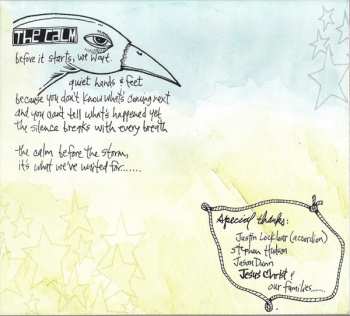 THE CALM
before it starts, we wait.
quiet hands & feet
because you don't know what's coming next
and you can't tell what's happened yet
the silence breaks with every breath
the calm before the storm,
it's what we've waited for......
special thanks:
Justin Locklear (accordion)
Stephen Hudson
Jason Dunn
Jesus Christ &
our families.....